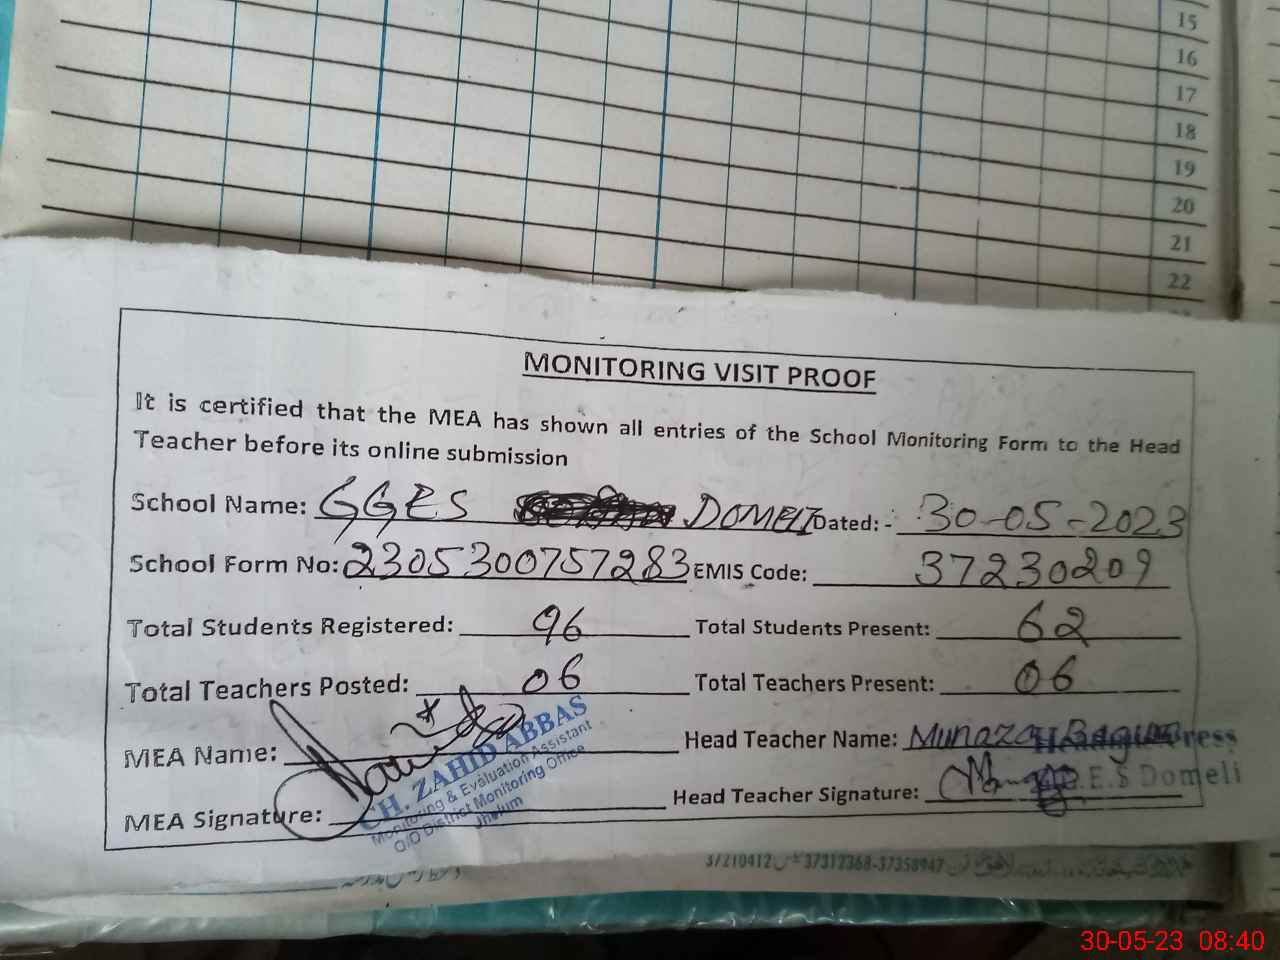 15
16
17
18
19
20
21
22
MONITORING VISIT PROOF
It is certified that the MEA has shown all entries of the School Monitoring Form to the Head
Teacher before its online submission
School Name: GGES DOMELI Dated: - 30-05-2023
School Form No: 2305300757283 EMIS Code: 37230209
Total Students Registered: 96 Total Students Present: 62
Total Teachers Posted: 06 Total Teachers Present: 06
MEA Name: Head Teacher Name: Munaza
CH. ZAHID ABBAS
Monitoring & Evaluation Assistant
O/O District Monitoring Office
Jhelum
MEA Signature: Head Teacher Signature:
E.S Domeli
37210412 37312368-37358947
30-05-23 08:40